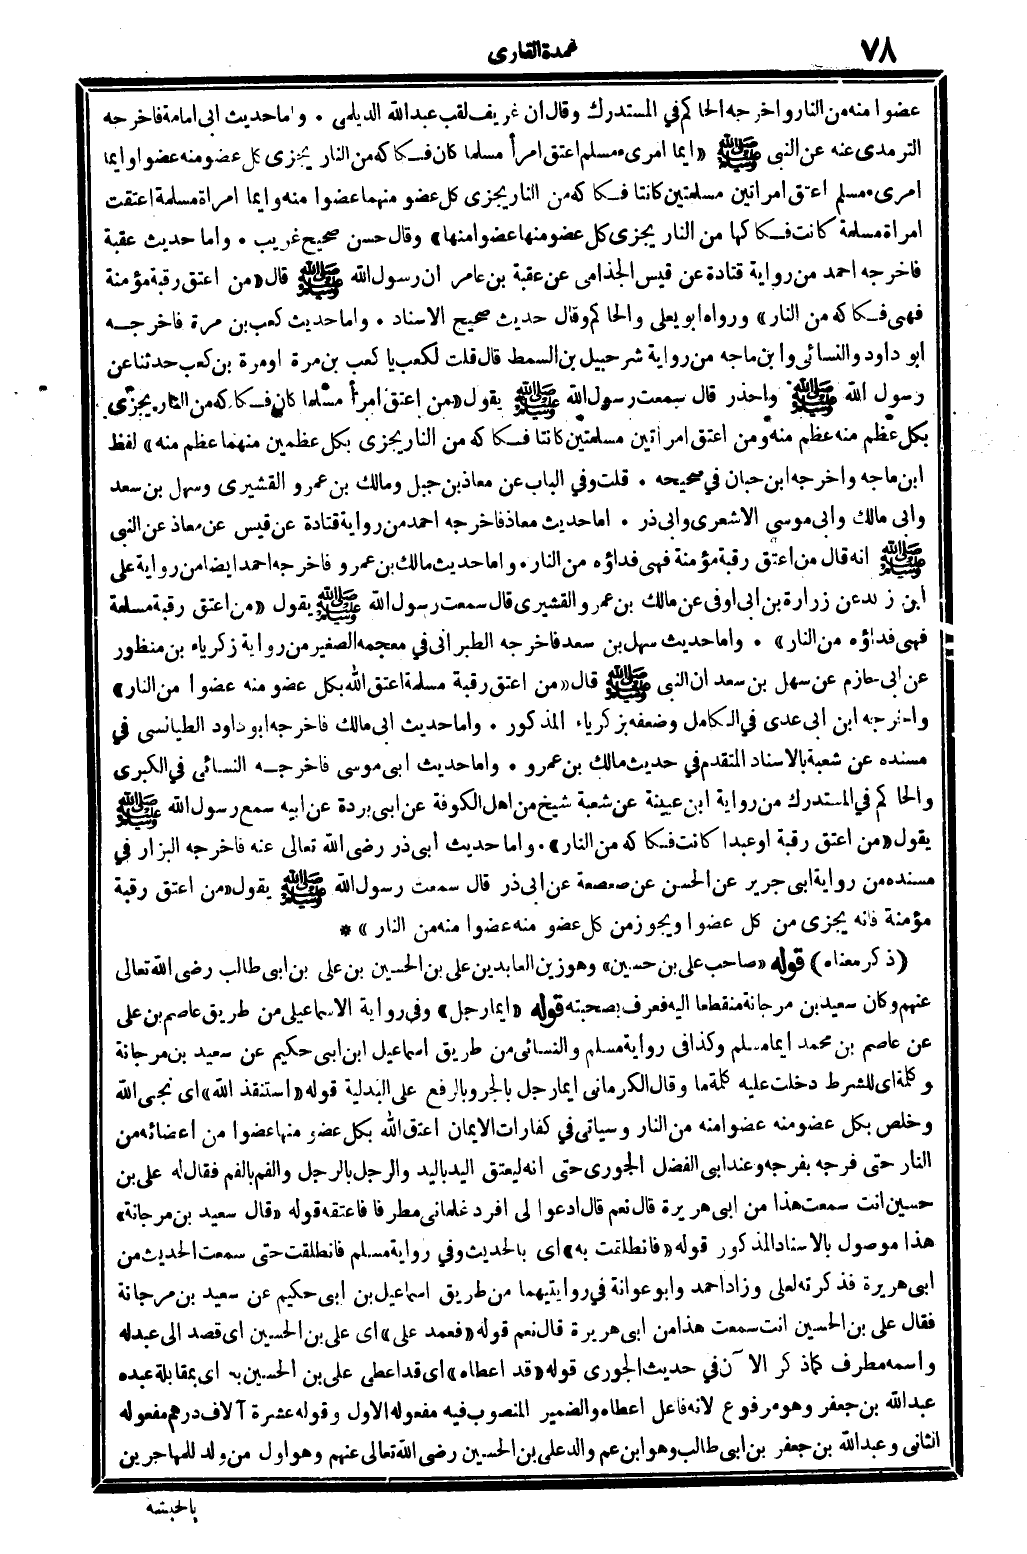 ٧٨
عمدة القارى
عضوا منه من النار واخرجه الحاكم في المستدرك وقال ان غريف لقب عبدالله الديلمى • واما حديث ابى امامة فاخرجه
الترمذى عنه عن النبى ﷺ «ايما امرىء مسلم اعتق امرأ مسلما كان فكاكه من النار يجزى كل عضو منه عضوا وايما
امرىء مسلم اعتق امرأتين مسلمتين كانتا فكاكه من النار يجزى كل عضو منهما عضوا منه وايما امراة مسلمة اعتقت
امراة مسلمة كانت فكاكها من النار يجزى كل عضو منها عضوا منها» وقال حسن صحيح غريب • واما حديث عقبة
فاخرجه احمد من رواية قتادة عن قيس الجذامى عن عقبة بن عامر ان رسول الله ﷺ قال «من اعتق رقبة مؤمنة
فهى فكاكه من النار» ورواه ابو يعلى والحاكم وقال حديث صحيح الاسناد • واما حديث كعب بن مرة فاخرجه
ابو داود والنسائى وابن ماجه من رواية شرحبيل بن السمط قال قلت لكعب يا كعب بن مرة او مرة بن كعب حدثنا عن
رسول الله ﷺ واحذر قال سمعت رسول الله ﷺ يقول «من اعتق امرأ مسلما كان فكاكه من النار يجزى
بكل عظم منه عظم منه ومن اعتق امراتين مسلمتين كانتا فكاكه من النار يجزى بكل عظمين منهما عظم منه» لفظ
ابن ماجه واخرجه ابن حبان في صحيحه • قلت وفي الباب عن معاذ بن جبل ومالك بن عمرو القشيرى وسهل بن سعد
وابى مالك وابى موسى الاشعرى وابى ذر • اما حديث معاذ فاخرجه احمد من رواية قتادة عن قيس عن معاذ عن النبى
ﷺ انه قال من اعتق رقبة مؤمنة فهى فداؤه من النار • واما حديث مالك بن عمرو فاخرجه احمد ايضا من رواية على
ابن زيد عن زرارة بن ابى اوفى عن مالك بن عمرو القشيرى قال سمعت رسول الله ﷺ يقول «من اعتق رقبة مسلمة
فهى فداؤه من النار» • واما حديث سهل بن سعد فاخرجه الطبرانى في معجمه الصغير من رواية زكرياء بن منظور
عن ابى حازم عن سهل بن سعد ان النبى ﷺ قال «من اعتق رقبة مسلمة اعتق الله بكل عضو منه عضوا من النار»
واخرجه ابن ابى عدى في الكامل وضعفه بزكرياء المذكور • واما حديث ابى مالك فاخرجه ابو داود الطيالسى في
مسنده عن شعبة بالاسناد المتقدم في حديث مالك بن عمرو • واما حديث ابى موسى فاخرجه النسائى في الكبرى
والحاكم في المستدرك من رواية ابن عيينة عن شعبة شيخ من اهل الكوفة عن ابى بردة عن ابيه سمع رسول الله ﷺ
يقول «من اعتق رقبة او عبدا كانت فكاكه من النار» • واما حديث ابى ذر رضى الله تعالى عنه فاخرجه البزار في
مسنده من رواية ابى جرير عن الحسن عن صعصعة عن ابى ذر قال سمعت رسول الله ﷺ يقول «من اعتق رقبة
مؤمنة فانه يجزى من كل عضوا ويجوز من كل عضو منه عضوا منه من النار» *
(ذكر معناه) قوله «صاحب على بن حسين» وهو زين العابدين على بن الحسين بن على بن ابى طالب رضى الله تعالى
عنهم وكان سعيد بن مرجانة منقطعا اليه فعرف بصحبته قوله «ايما رجل» وفي رواية الاسماعيلى من طريق عاصم بن على
عن عاصم بن محمد ايما مسلم وكذا في رواية مسلم والنسائى من طريق اسماعيل ابن ابى حكيم عن سعيد بن مرجانة
وكلمة اى للشرط دخلت عليه كلمة ما وقال الكرمانى ايما رجل بالجر وبالرفع على البدلية قوله «استنقذ الله» اى نجى الله
وخلص بكل عضو منه عضوا منه من النار وسياتى في كفارات الايمان اعتق الله بكل عضو منها عضوا من اعضائه من
النار حتى فرجه بفرجه وعند ابى الفضل الجوزى حتى انه ليعتق اليد باليد والرجل بالرجل والفم بالفم فقال له على بن
حسين انت سمعت هذا من ابى هريرة قال نعم قال ادعوا لى افرد غلمانى مطرفا فاعتقه قوله «قال سعيد بن مرجانة»
هذا موصول بالاسناد المذكور قوله «فانطلقت به» اى بالحديث وفي رواية مسلم فانطلقت حتى سمعت الحديث من
ابى هريرة فذكرته لعلى وزاد احمد وابو عوانة في روايتيهما من طريق اسماعيل بن ابى حكيم عن سعيد بن مرجانة
فقال على بن الحسين انت سمعت هذا من ابى هريرة قال نعم قوله «فعمد على» اى على بن الحسين اى قصد الى عبد له
واسمه مطرف كما ذكر الآن في حديث الجوزى قوله «قد اعطاه» اى قد اعطى على بن الحسين به اى بمقابلة عبده
عبدالله بن جعفر وهو مرفوع لانه فاعل اعطاه والضمير المنصوب فيه مفعوله الاول وقوله عشرة آلاف درهم مفعوله
الثانى وعبدالله بن جعفر بن ابى طالب وهو ابن عم والد على بن الحسين رضى الله تعالى عنهم وهو اول من ولد للمهاجرين
بالحبشة